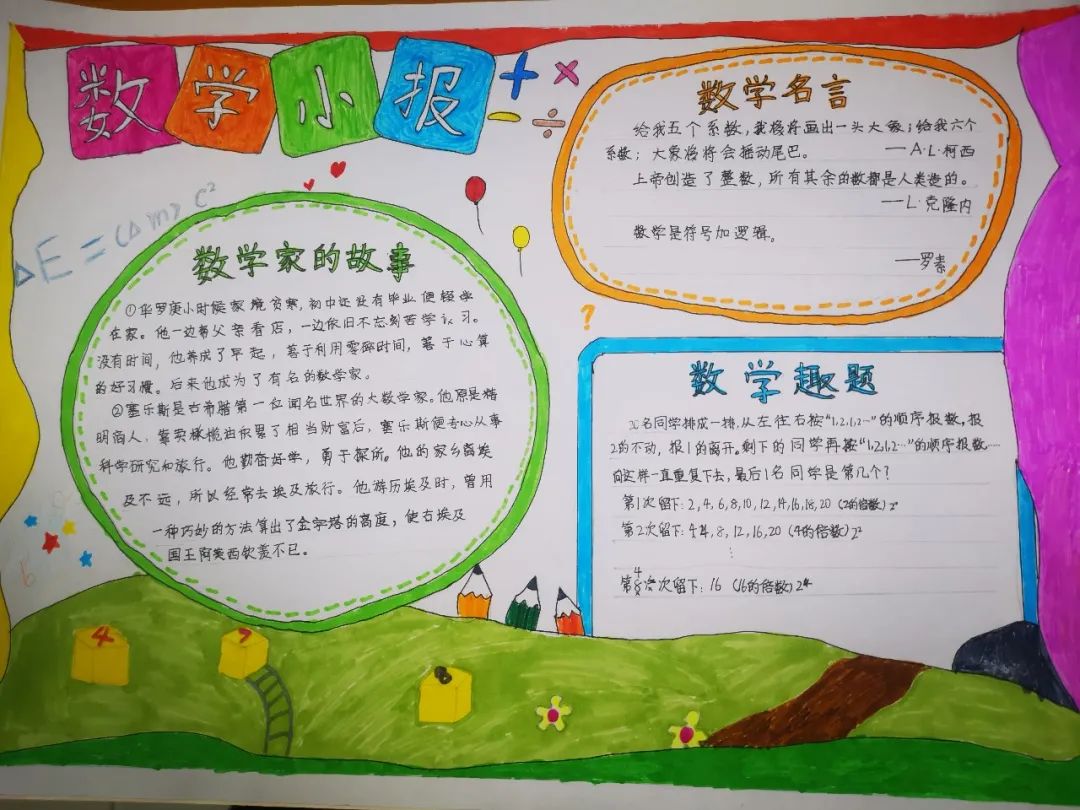 数学小报
+ × − ÷
数学名言
给我五个系数,我将将画出一头大象;给我六个
系数;大象将将会摇动尾巴。 —A·L·柯西
上帝创造了整数,所有其余的数都是人类造的。
—L·克隆内
数学是符号加逻辑。
—罗素
ΔE=(Δm)c²
数学家的故事
①华罗庚小时候家境贫寒,初中还没有毕业便辍学
在家。他一边帮父亲看店,一边依旧不忘刻苦学习。
没有时间,他养成了早起,善于利用零碎时间,善于心算
的好习惯。后来他成为了有名的数学家。
②塞乐斯是古希腊第一位闻名世界的大数学家。他原是精
明商人,靠卖橄榄油积累了相当财富后,塞乐斯便专心从事
科学研究和旅行。他勤奋好学,勇于探所。他的家乡离埃
及不远,所以经常去埃及旅行。他游历埃及时,曾用
一种巧妙的方法算出了金字塔的高度,使古埃及
国王阿美西钦羡不已。
?
数学趣题
20名同学排成一排,从左往右按“1,2,1,2…”的顺序报数,报
2的不动,报1的离开。剩下的同学再按“1,2,1,2…”的顺序报数……
向这样一直重复下去,最后1名同学是第几个?
第1次留下:2,4,6,8,10,12,14,16,18,20 (2的倍数)
第2次留下:4,8,12,16,20 (4的倍数)2²
⋮
第4次留下:16 (16的倍数)2⁴
6
4
7